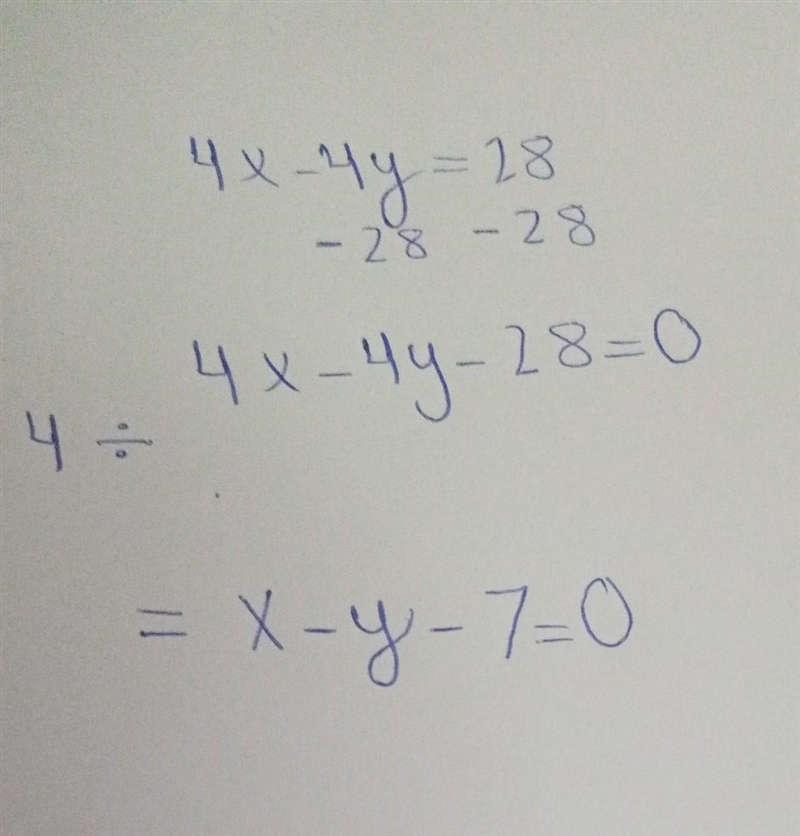 4x - 4y = 28
- 28 - 28
4x - 4y - 28 = 0
4 ÷
= x - y - 7 = 0